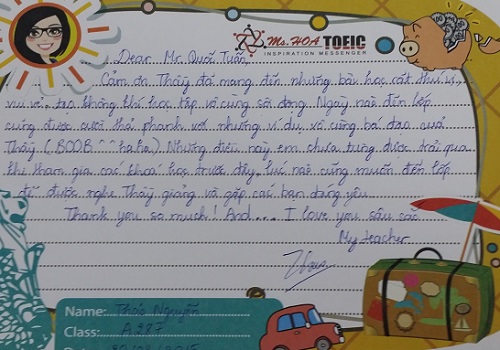 Ms. HOA TOEIC
INSPIRATION MESSENGER
Dear Mr. Quốc Tuấn,
Cảm ơn Thầy đã mang đến những bài học rất thú vị,
vui vẻ, tạo không khí học tập vô cùng sôi động. Ngày nào đến lớp
cũng được cười thả phanh với những ví dụ vô cùng bá đạo của
Thầy (BOOB ^^ haha). Những điều này em chưa từng được trải qua
khi tham gia các khoá học trước đây, lúc nào cũng muốn đến lớp
để được nghe Thầy giảng và gặp các bạn đáng yêu.
Thank you so much! And... I love you sâu sắc
My teacher
Name: Thảo Nguyễn
Class: A987